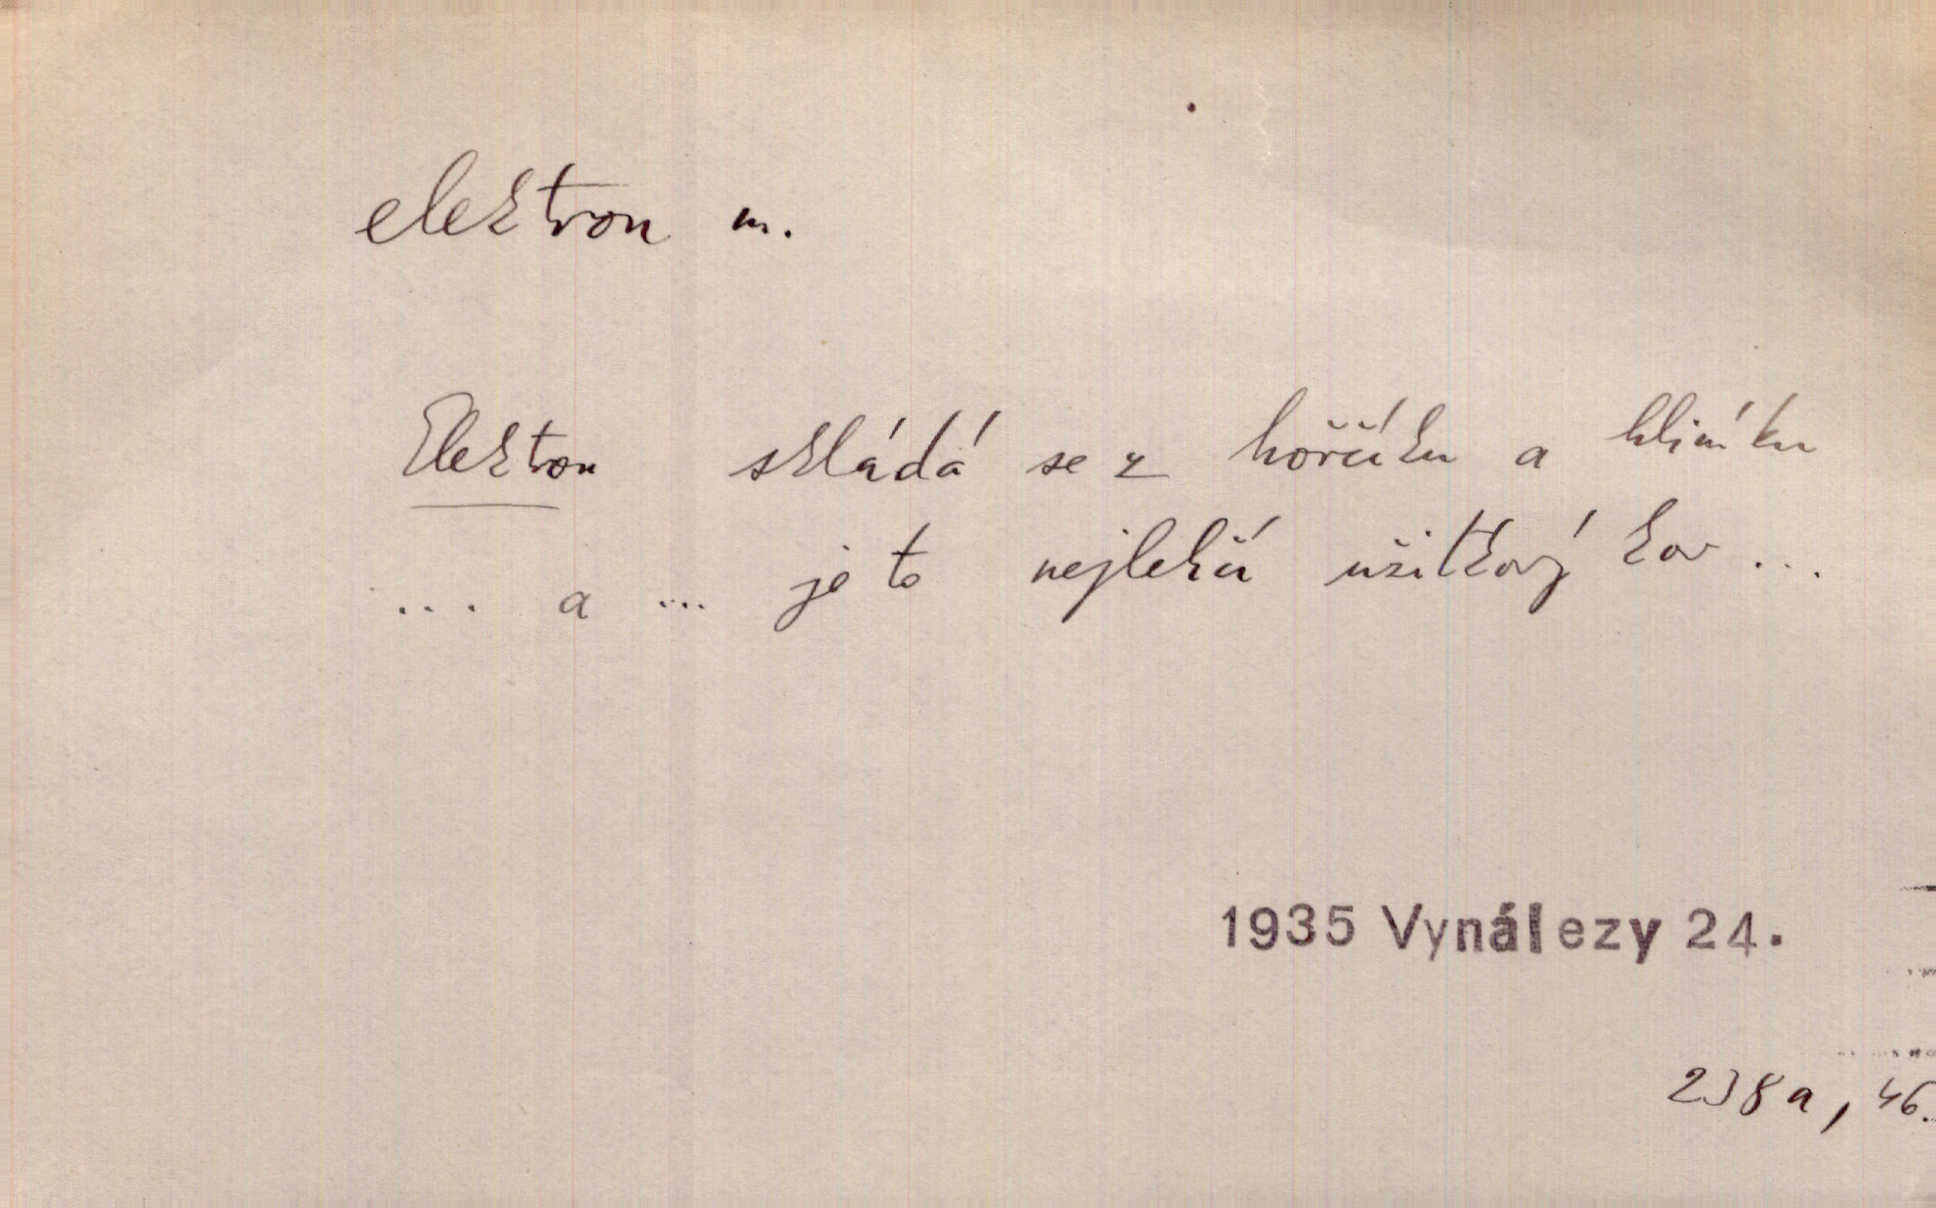 elektron m.
Elektron skládá se z hořčíku a hliníku
... a ... je to nejlehčí užitkový kov ...
1935 Vynálezy 24.
238a, 46.